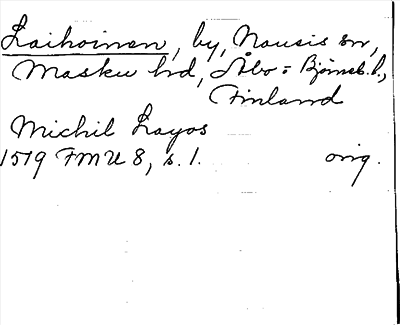 Laihoinen, by, Nousis sn,
Masku hd, Åbo = Björneb. l.,
Finland
Michil Layos
1519 FMU 8, s. 1. orig.